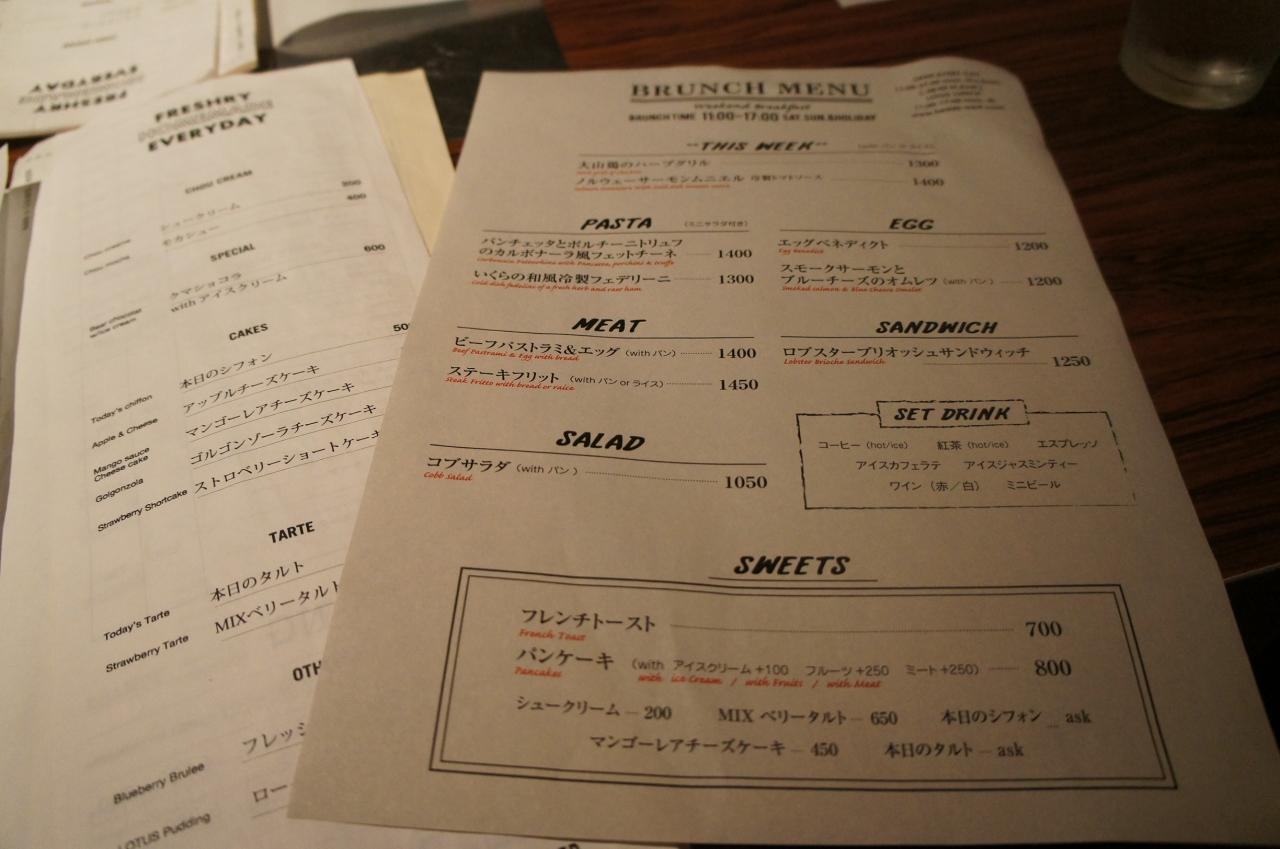 FRESHRY
HOMEMADE
EVERYDAY
FRESHRY
HOMEMADE
EVERYDAY
CHOU CREAM
Chou creame シュークリーム 200
Chou mocha モカシュー 400
SPECIAL
Bear chocolat
w/ice cream
クマショコラ 600
with アイスクリーム
CAKES
Today's chiffon 本日のシフォン
Apple & Cheese アップルチーズケーキ
Mango sauce
Cheese cake
マンゴーレアチーズケーキ
Golgonzola ゴルゴンゾーラチーズケーキ
Strawberry Shortcake ストロベリーショートケーキ
TARTE
Today's Tarte 本日のタルト
Strawberry Tarte MIXベリータルト
OTH
Blueberry Brulee フレッシ
LOTUS Pudding ロー
BRUNCH MENU
weekend breakfast
BRUNCH TIME 11:00-17:00 SAT SUN.&HOLIDAY
"THIS WEEK"
大山鶏のハーブグリル 1300
ノルウェーサーモンムニエル 冷製トマトソース 1400
PASTA (ミニサラダ付き)
パンチェッタとポルチーニトリュフ
のカルボナーラ風フェットチーネ 1400
いくらの和風冷製フェデリーニ 1300
Cold dish fedelini of a fresh herb and raw ham
EGG
エッグベネディクト 1200
Egg Benedict
スモークサーモンと
ブルーチーズのオムレツ (with パン) 1200
Smoked salmon & Blue Cheese Omelet
MEAT
ビーフパストラミ&エッグ (with パン) 1400
Beef Pastrami & Egg with bread
ステーキフリット (with パン or ライス) 1450
Steak Fritto with bread or raice
SANDWICH
ロブスターブリオッシュサンドウィッチ 1250
Lobster Brioche Sandwich
SALAD
コブサラダ (with パン) 1050
Cobb Salad
SET DRINK
コーヒー (hot/ice) 紅茶 (hot/ice) エスプレッソ
アイスカフェラテ アイスジャスミンティー
ワイン (赤/白) ミニビール
SWEETS
フレンチトースト 700
French Toast
パンケーキ (with アイスクリーム+100 フルーツ+250 ミート+250) 800
Pancakes with ice Cream / with Fruits / with Meat
シュークリーム — 200 MIX ベリータルト — 650 本日のシフォン ... ask
マンゴーレアチーズケーキ — 450 本日のタルト — ask